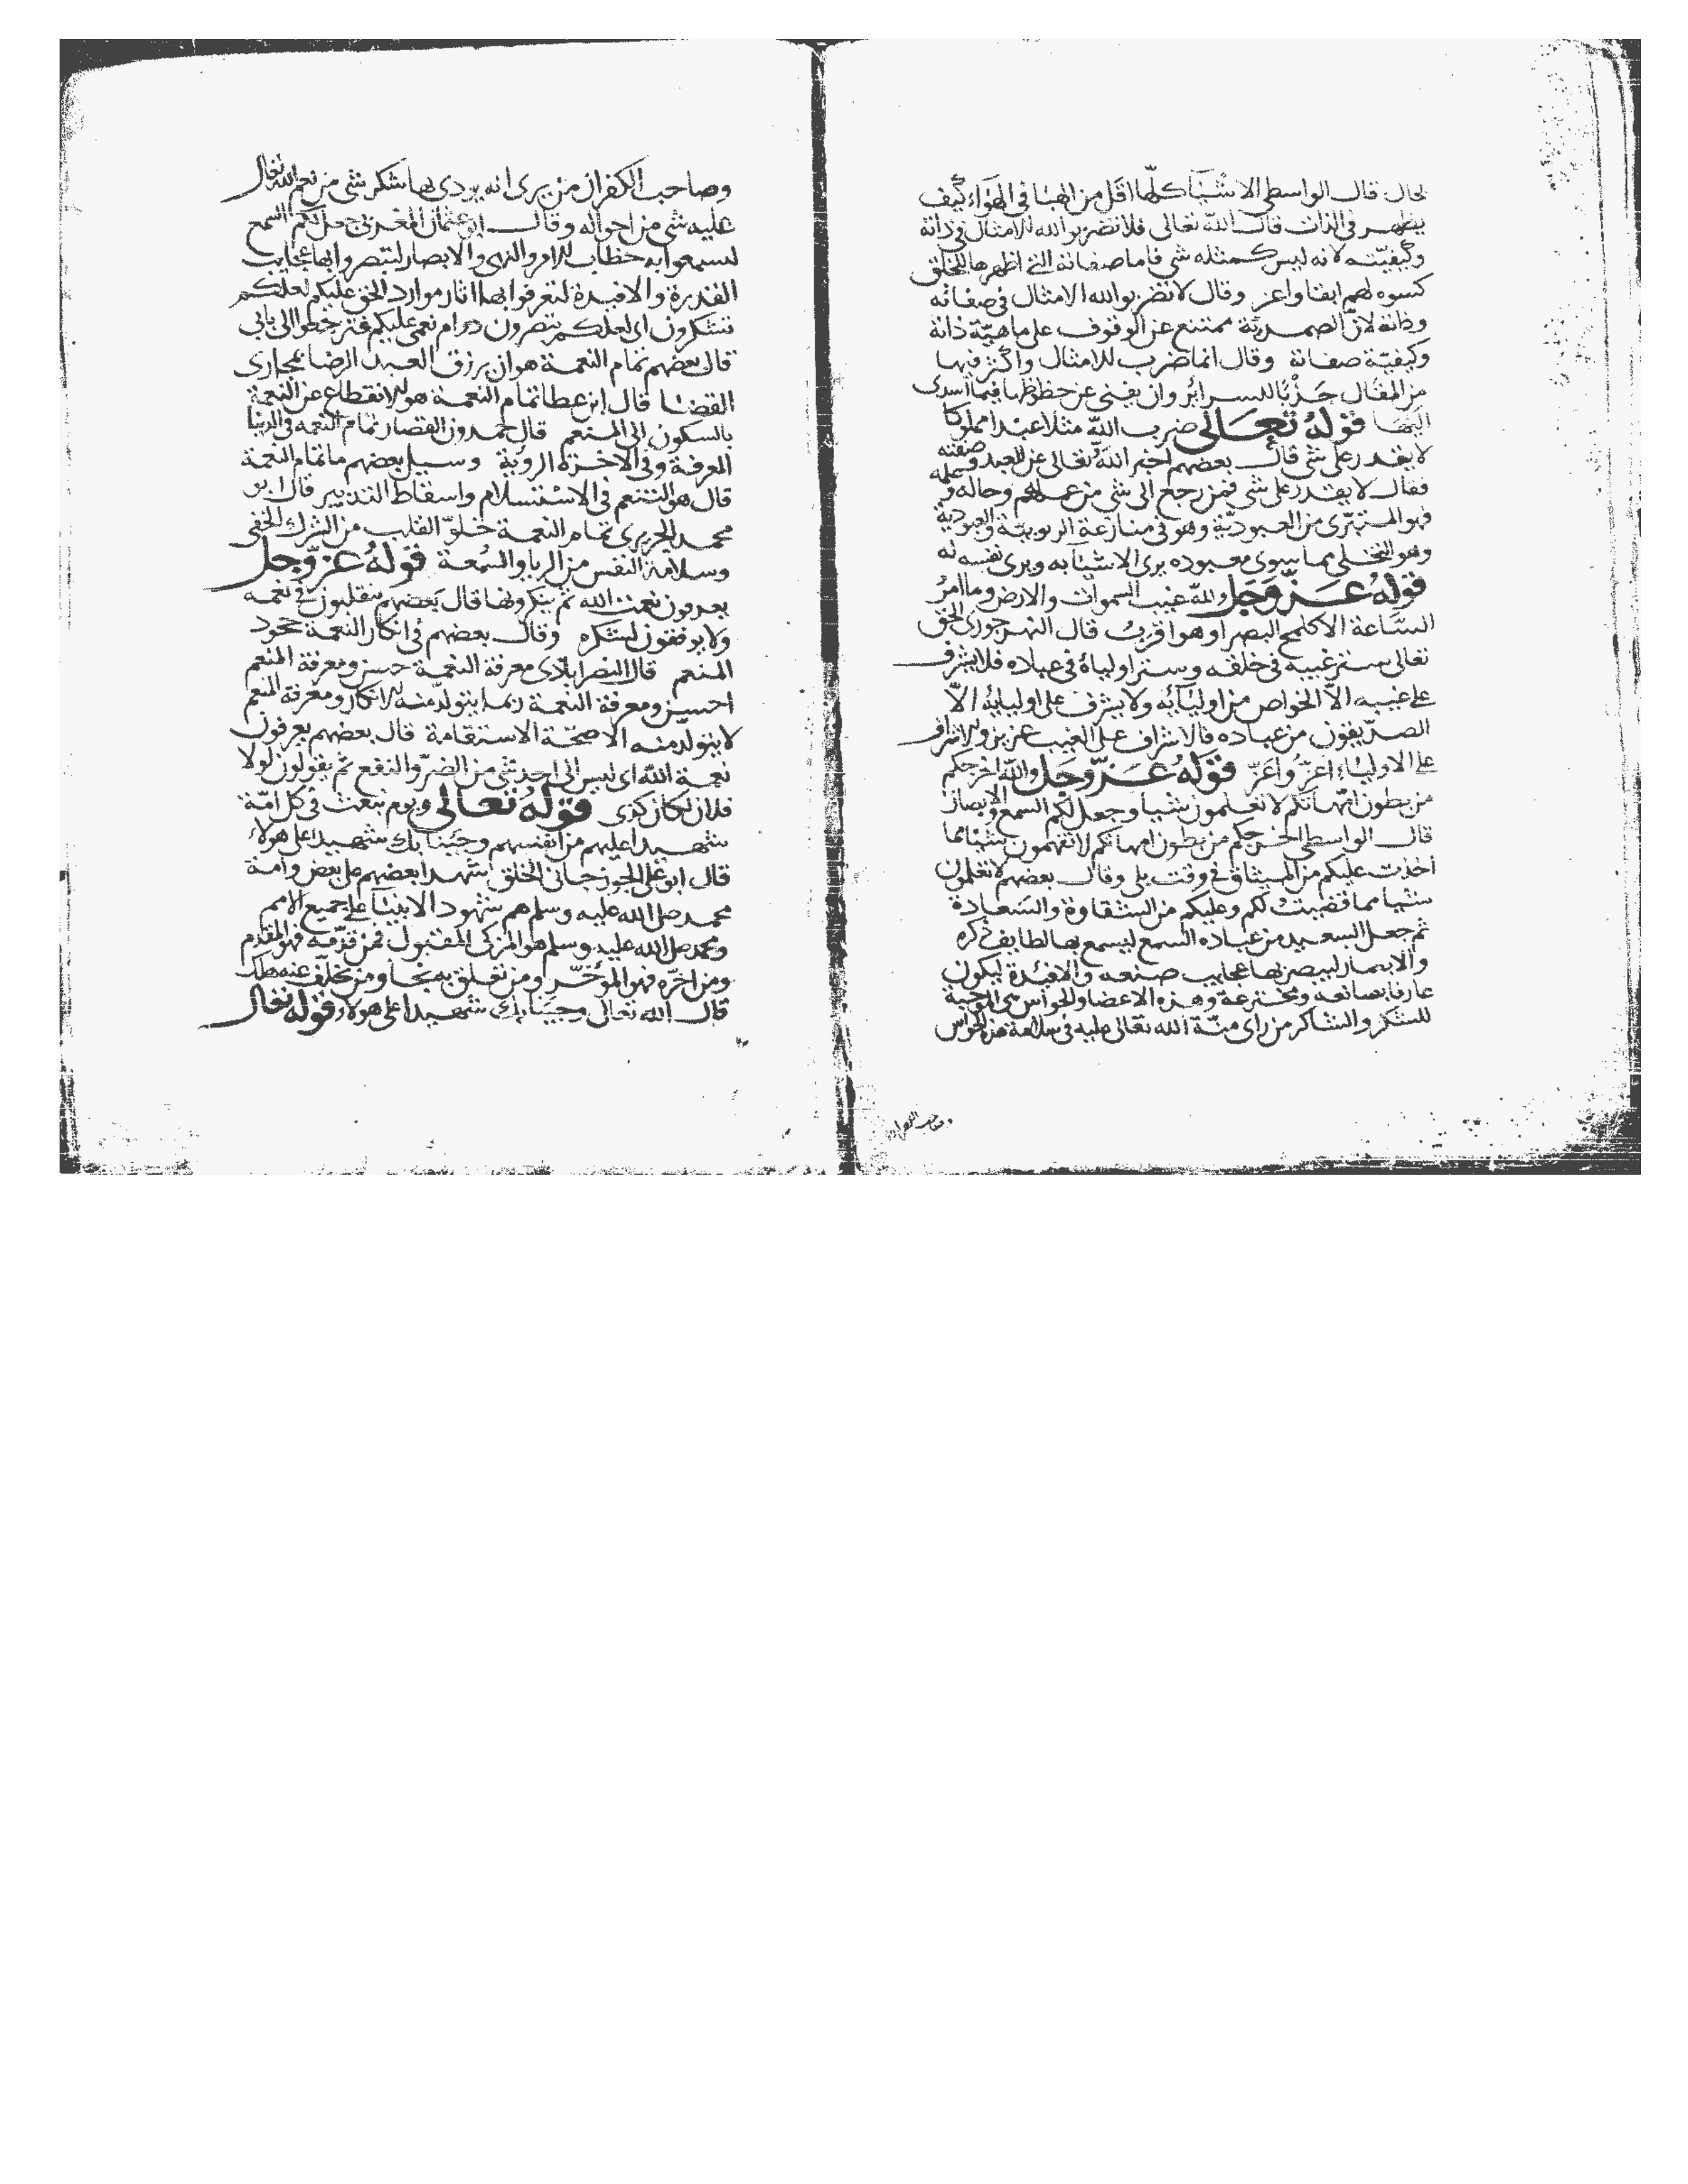 لحال قال الواسطى الاشيا كلها اقل من الهبا فى الهواء كيف
يظهر فى الذات قال الله تعالى فلا تضربوا لله الامثال فى ذاته
وكيفيته لانه ليس كمثله شى فاما صفاته التى اظهرها للخلق
كسوه لهم ابقا واعز وقال لا تضربوا لله الامثال فى صفاته
وذاته لان الصمدية ممتنع عن الوقوف على ماهية ذاته
وكيفية صفاته وقال انما ضرب للامثال واكثر فيها
من المقال جذبا للسراير وان يفنى عن حظوظها فيما اسدى
اليها قوله تعالى ضرب الله مثلا عبدا مملوكا
لا يقدر على شى قال بعضهم اخبر الله تعالى عن العبد وصفته
فقال لا يقدر على شى فمن رجع الى شى من عمله وحاله وعلمه
فهو المتبرى من العبودية وهو فى منازعة الربوبية والعبودية
وهو التخلى مما سوى معبوده يرى الاشيا به ويرى نفسه له
قوله عز وجل ولله غيب السموات والارض وما امر
الساعة الا كلمح البصر او هو اقرب قال النهرجورى الحق
تعالى ستر غيبه فى خلقه وستر اولياه فى عباده فلا يشرف
على غيبه الا الخواص من اوليايه ولا يشرف على اوليايه الا
الصديقون من عباده فالاشراف على الغيب عزيز والاشراف
على الاولياء اعز واعز قوله عز وجل والله اخرجكم
من بطون امهاتكم لا تعلمون شيا وجعل لكم السمع والابصار
قال الواسطى اخرجكم من بطون امهاتكم لا تفهمون شيا مما
اخذت عليكم من الميثاق فى وقت بلى وقال بعضهم لا تعلمون
شيا مما قضيت لكم وعليكم من الشقاوة والسعادة
ثم جعل السعيد من عباده السمع ليسمع بها لطايف ذكره
والابصار ليبصر بها عجايب صنعه والافيدة ليكون
عارفا بصانعه ومخترعه وهذه الاعضا والحواس هى الموجبة
للشكر والشاكر من راى منة الله تعالى عليه فى سلامة هذه الحواس
وصاحب الكفران
وصاحب الكفران من يرى انه يودى بها شكر شى من نعم الله تعالى
عليه شى من احواله وقال ابو عثمان المغربى جعل لكم السمع
لتسمعوا به خطاب الامر والنهى والابصار لتبصروا بها عجايب
القدرة والافيدة لتعرفوا بها اثار موارد الحق عليكم لعلكم
تشكرون اى لعلكم تبصرون دوام نعمى عليكم فترجعوا الى بابى
قال بعضهم تمام النعمة هو ان يرزق العبد الرضا بمجارى
القضا قال ابن عطا تمام النعمة هو الانقطاع عن النعمة
بالسكون الى المنعم قال حمدون القصار تمام النعمه فى الدنيا
المعرفة وفى الاخرة الروية وسيل بعضهم ما تمام النعمة
قال هو التنعم فى الاستسلام واسقاط التدبير قال ابو
محمد الجريرى تمام النعمة خلو القلب من الشرك الخفى
وسلامة النفس من الريا والسمعة قوله عز وجل
يعرفون نعمت الله ثم ينكرونها قال بعضهم يتقلبون فى نعمه
ولا يوفقون لشكره وقال بعضهم فى انكار النعمة جحود
المنعم قال النصراباذى معرفة النعمة حسن ومعرفة المنعم
احسن ومعرفة النعمة ربما يتولد منه الانكار ومعرفة المنعم
لا يتولد منه الا صحة الاستقامة قال بعضهم يعرفون
نعمة الله اى ليس الى احد شى من الضر والنفع ثم يقولون لولا
فلان لكان كذى قوله تعالى ويوم نبعث فى كل امة
شهيدا عليهم من انفسهم وجينا بك شهيدا على هولاء
قال ابو على الجوزجانى الخلق شهدا بعضهم على بعض وامة
محمد صلى الله عليه وسلم هم شهود الانبيا على جميع الامم
ومحمد صلى الله عليه وسلم هو المزكى المقبول فمن قدمه فهو المقدم
ومن اخره فهو المؤخر ومن تعلق به نجا ومن تخلف عنه هلك
قال الله تعالى وجينا بك شهيدا على هولاء قوله تعالى